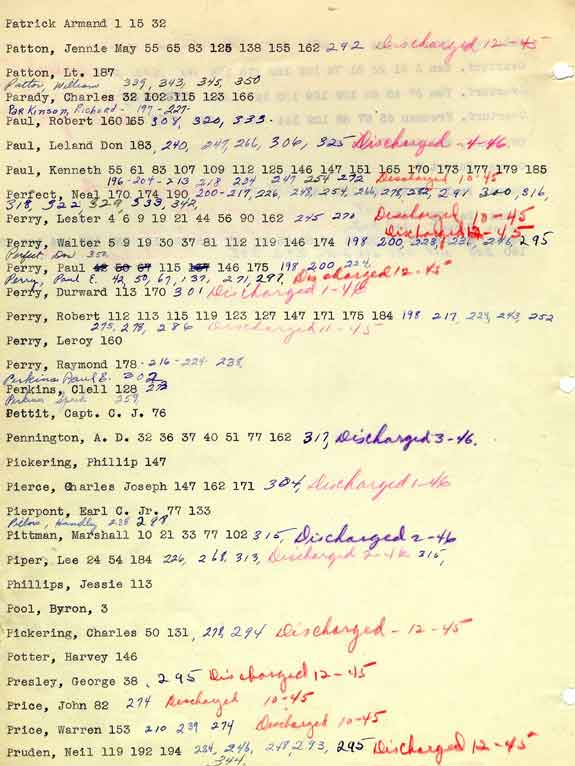 Patrick Armand 1 15 32
Patton, Jennie May 55 65 83 125 138 155 162 292 Discharged 12-45
Patton, Lt. 187
Patton, William 339, 343, 345, 350
Parady, Charles 32 102 115 123 166
Parkinson, Richard - 197-227
Paul, Robert 160 165 308, 320, 333.
Paul, Leland Don 183, 240, 247, 266, 306, 325 Discharged -4-46
Paul, Kenneth 55 61 83 107 109 112 125 146 147 151 165 170 173 177 179 185
196-204-213 218 234 247 254 272 Discharged 10-45
Perfect, Neal 170 174 190 200-217, 226, 248, 254, 266, 278, 282, 291 300, 316,
318, 322, 329, 333, 342,
Perry, Lester 4 6 9 19 21 44 56 90 162 245 270 Discharged 10-45
Discharged 12-45
Perry, Walter 5 9 19 30 37 81 112 119 146 174 198 200, 223, 236, 246, 295
Perfect Don 350
Perry, Paul 42 50 67 115 137 146 175 198 200 224
Perry, Paul E. 42, 50, 67, 137, 271, 297, Discharged 12-45
Perry, Durward 113 170 301 Discharged 1-46
Perry, Robert 112 113 115 119 123 127 147 171 175 184 198 217, 229, 243, 252
275, 278, 286 Discharged 11-45
Perry, Leroy 160
Perry, Raymond 178-216-224-238,
Perkins Paul E. 302
Perkins, Clell 128 273
Perkins 259
Pettit, Capt. C. J. 76
Pennington, A. D. 32 36 37 40 51 77 162 317, Discharged 3-46.
Pickering, Phillip 147
Pierce, Charles Joseph 147 162 171 304, Discharged 1-46
Pierpont, Earl C. Jr. 77 133
Handley 238 298
Pittman, Marshall 10 21 33 77 102 315, Discharged 2-46
Piper, Lee 24 54 184 226, 268, 313, Discharged 2-46 315,
Phillips, Jessie 113
Pool, Byron, 3
Pickering, Charles 50 131, 278, 294 Discharged - 12-45
Potter, Harvey 146
Presley, George 38, 295 Discharged 12-45
Price, John 82 274 Discharged 10-45
Price, Warren 153 210 239 274 Discharged 10-45
Pruden, Neil 119 192 194 234, 246, 248, 293, 295 Discharged 12-45
344,